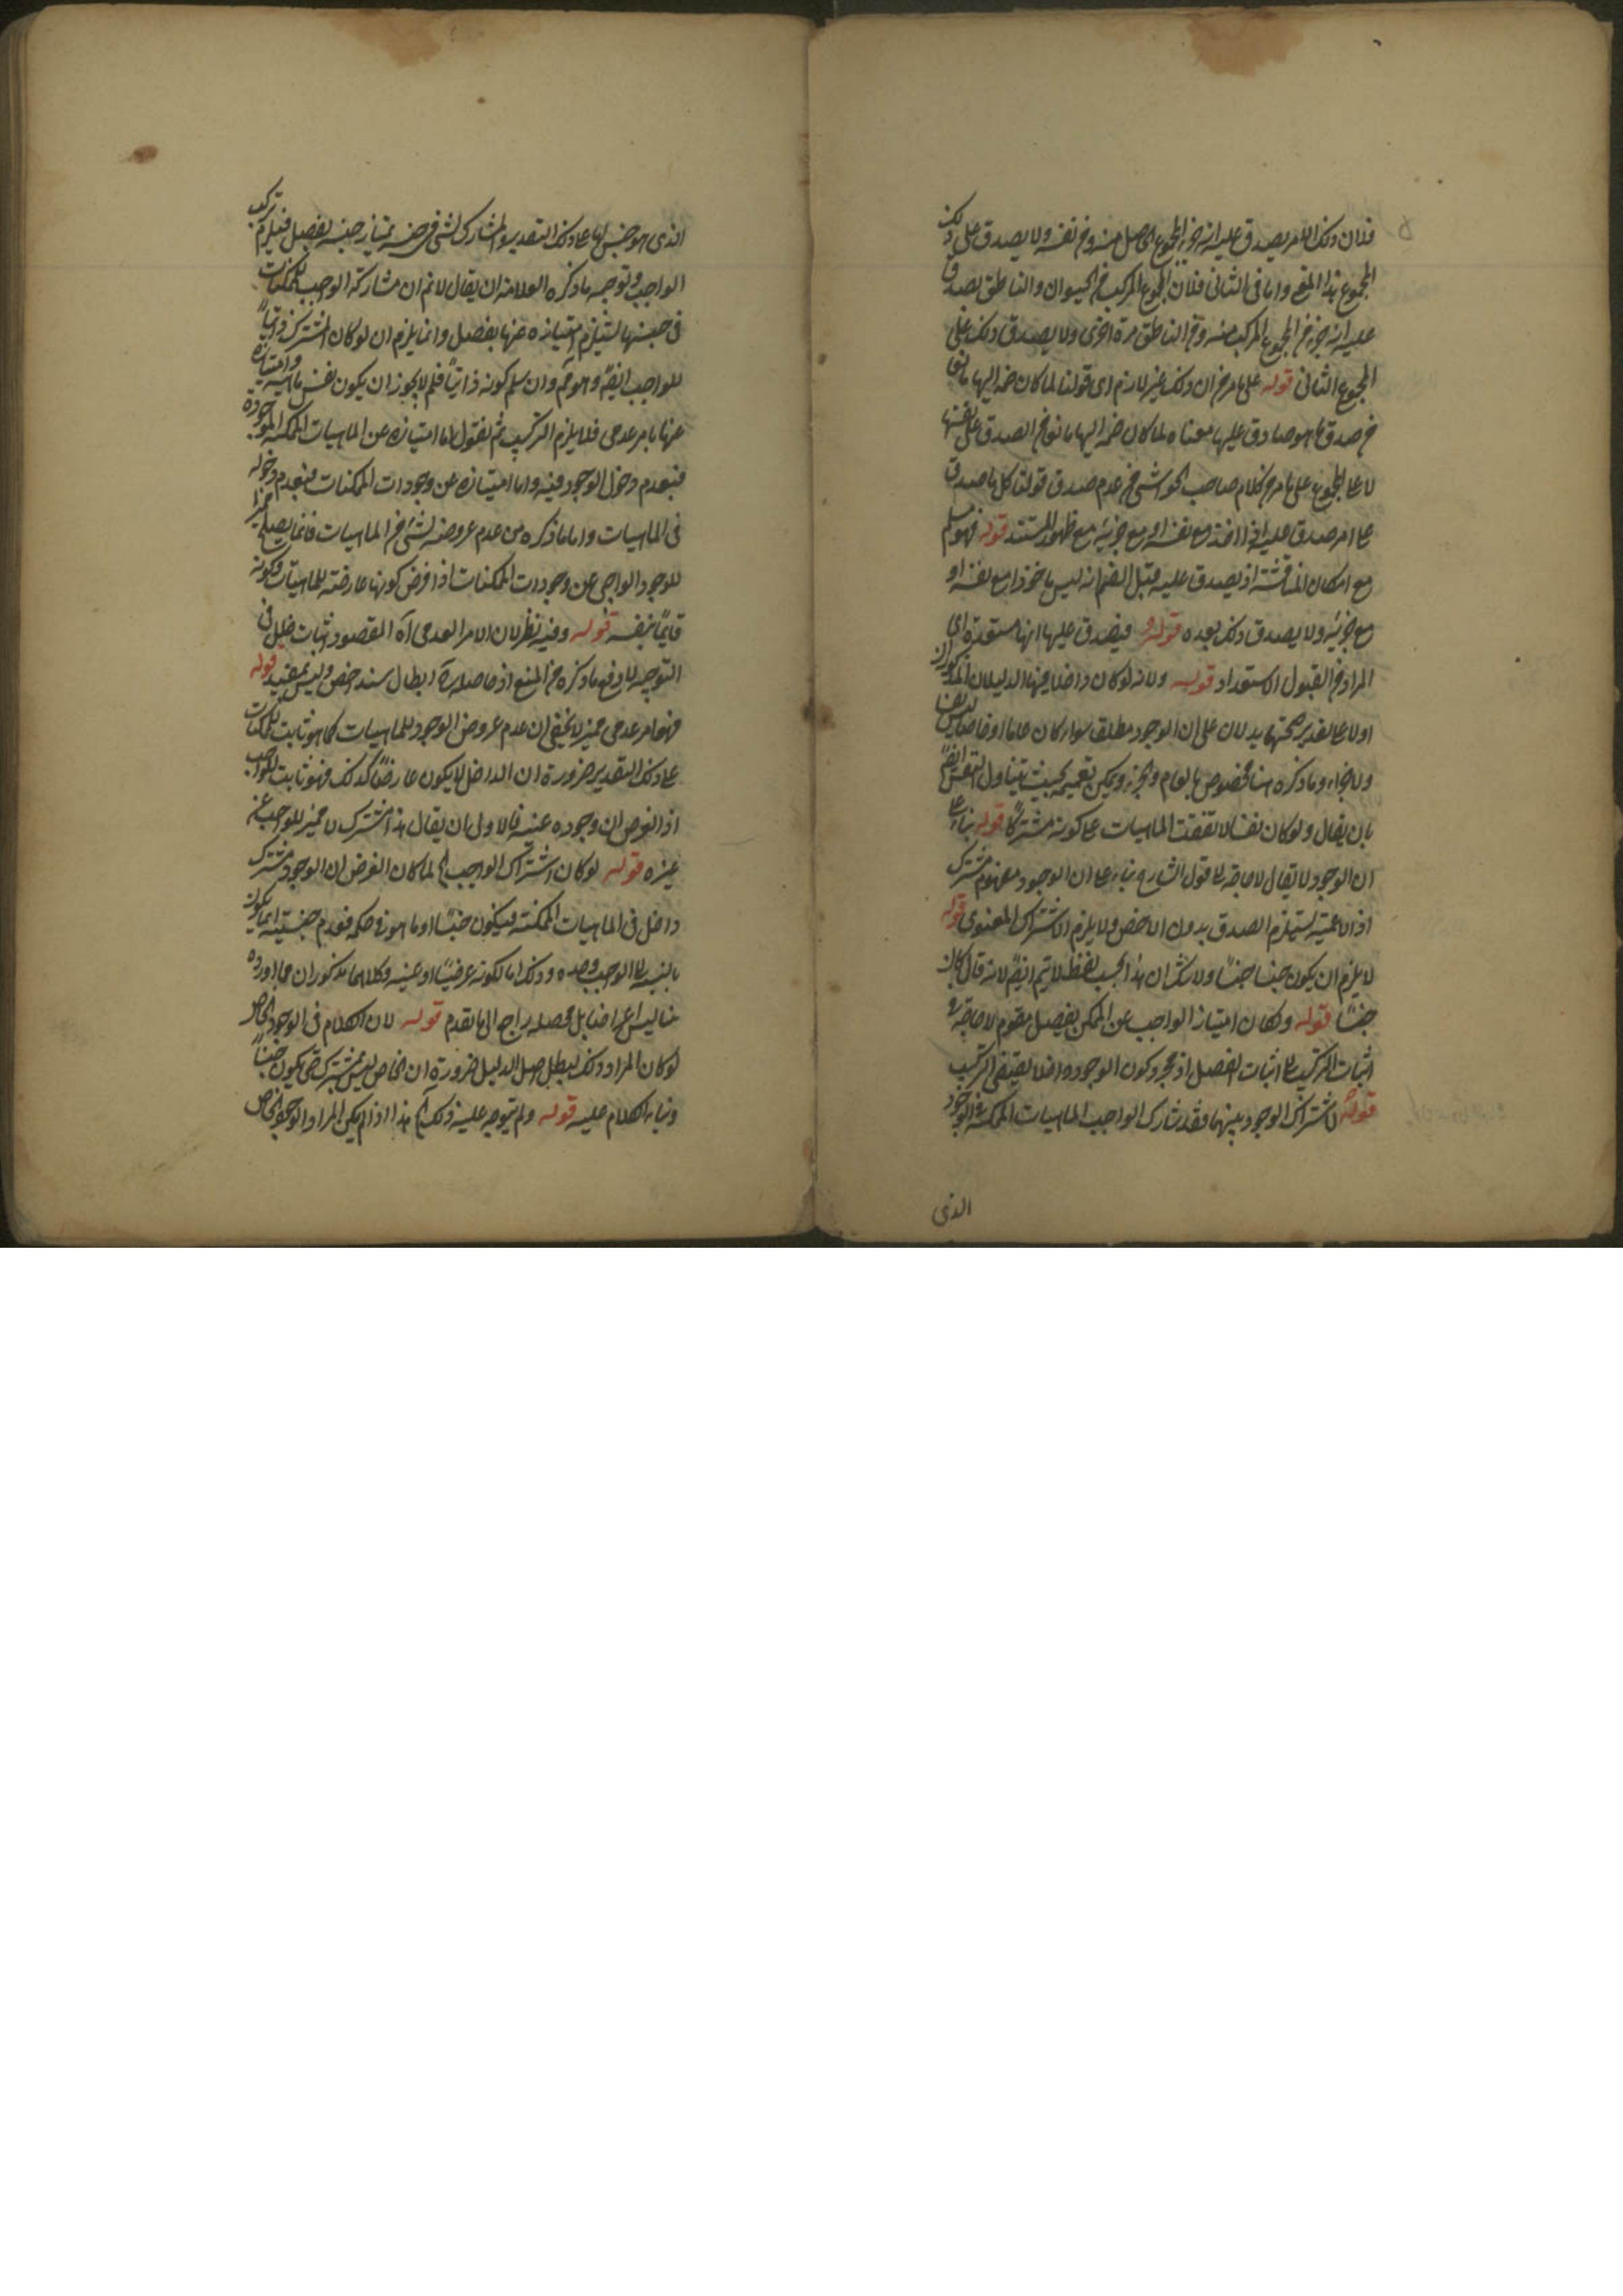 فلان ذلك الامر يصدق عليه انه جزء المجموع الحاصل منه و من نفسه ولا يصدق على ذلك
المجموع هذا المنع واما في الثاني فلان المجموع المركب من الحيوان والناطق يصدق
عليه انه جزء من المجموع المركب منه ومن الناطق مرة اخرى ولا يصدق ذلك على
المجموع الثاني قوله على ما مر من ان ذلك غير لازم اى قولنا لما كان ضم اليها مانعا
من صدق ما هو صادق عليها معناه لما كان ضم اليها مانع من الصدق على نفسها
لا على المجموع على ما مر من كلام صاحب الحواشي من عدم صدق قولنا كل ما صدق
على امر صدق عليه اذا اخذ مع نفسه او مع جزئه مع ظهور المستند قوله فهو مسلم
مع امكان المناقشة اذ يصدق عليه قبل الضم انه ليس ماخوذا مع نفسه او
مع جزئه ولا يصدق ذلك بعده قوله و فيصدق عليها انها مستعدة اى
المراد من القبول الاستعداد قوله ولانه لو كان داخلا فيها الدليلان المذكوران
اولا على تقدير صحتهما يدلان على ان الوجود مطلقا سواء كان عاما او خاصا ليس نفسا
ولا جزاء وما ذكره هنا مخصوص بالعام والجزء ويمكن تعميمه بحيث يتناول النفس ايضا
بان يقال ولو كان نفسا لاتفقت الماهيات على كونه مشتركا قوله بناء على
ان الوجود لا يقال لا حاجة الى قول الشارح بناء على ان الوجود مفهوم مشترك
اذ الاعمية يستلزم الصدق بدون الاخص ولا يلزم الاشتراك المعنوى قوله
لا يلزم ان يكون جنسا جنسا ولا شك ان هذا بحسب لفظه لا يتم ايضا لانه قال كان
جنسا قوله ولكان امتياز الواجب عن الممكن بفصل مقوم لا حاجة في
اثبات التركيب الى اثبات الفصل اذ مجرد كون الوجود داخلا يقتضى التركيب
قوله لاشتراك الوجود بينهما فقد شارك الواجب الماهيات الممكنة في الوجود
الذى
الذى هو جنس لها على ذلك التقدير والمشارك لشئ في جنسه يمتاز عنه بفصل فيلزم تركب
الواجب وتوجيه ما ذكره العلامة ان يقال لا نم ان مشاركة الواجب للممكنات
في جنسها يستلزم امتيازه عنها بفصل وانما يلزم ان لو كان المشترك ذاتيا
للواجب ايضا وهو مم وان سلم كونه ذاتيا فلم لا يجوز ان يكون نفس ماهيته وامتيازه
عنها بامر عدمى فلا يلزم التركيب ثم نقول اما امتيازه عن الماهيات الممكنة الموجودة
فبعدم دخول الوجود فيه واما امتيازه عن وجودات الممكنات فبعدم دخوله
في الماهيات واما ما ذكره من عدم عروضه لشئ من الماهيات فانما يصلح مميزا
للوجود الواجبى عن وجودات الممكنات اذا فرض كونها عارضة للماهيات وكونه
قائما بنفسه قوله وفيه نظر لان الامر العدمى آه المقصود اثبات خلل في
التوجيه لا دفع ما ذكره من المنع اذ حاصله ابطال سند اخص وليس بمفيد قوله
فهو امر عدمى مميز لا يخفى ان عدم عروض الوجود للماهيات كما هو ثابت للممكنات
على ذلك التقدير ضرورة ان الداخل لا يكون عارضا كذلك فهو ثابت للواجب
اذ الفرض ان وجوده عينه فالاولى ان يقال هذا مشترك لا مميز للواجب عن
غيره قوله لو كان اشتراك الواجب الخ لما كان الفرض ان الوجود مشترك
داخل في الماهيات الممكنة فيكون جنسا او ما هو في حكمه فعدم جنسيته انما يكون
بالنسبة الى الواجب وحده وذلك اما لكونه عرضيا او عينه وكلاهما مذكوران فما اورده
هنا ليس اعتراضا بل محصله راجع الى ما تقدم قوله لان الكلام في الوجود الخاص
لو كان المراد ذلك لبطل اصل الدليل ضرورة ان الخاص ليس بمشترك حتى يكون جنسا
وبناء الكلام عليه قوله ولم يتوجه عليه ذلك الخ هذا اذا لم يكن المراد الوجود الخاص